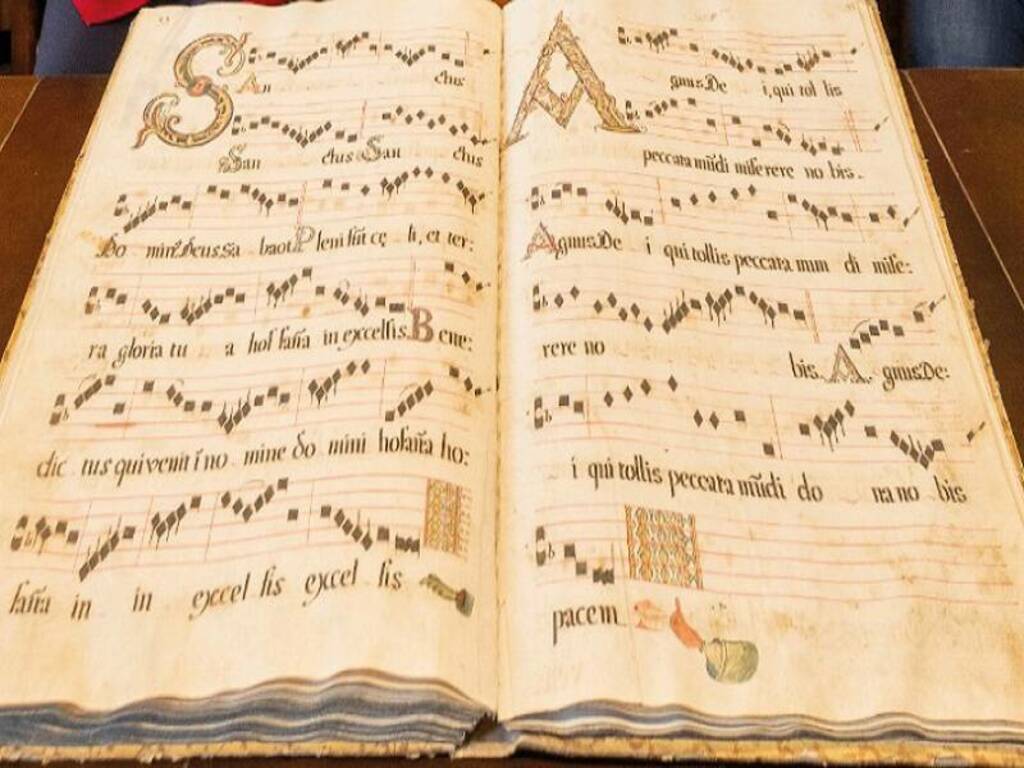 San ctus
San ctus San ctus
Do min⁹ Deus Sa baot Pleni sūt cę li, et ter:
ra gloria tu a hosſañа in excelsis. Bene:
dic tus qui venit ī no mine do mini hosaña ho:
saña in in excel sis excel sis
Agnus De i, qui tol lis
peccata mūdi miserere no bis.
Agnus De i qui tollis peccata mun di mise:
rere no bis. Agnus De:
i qui tollis peccata mūdi do na no bis
pacem